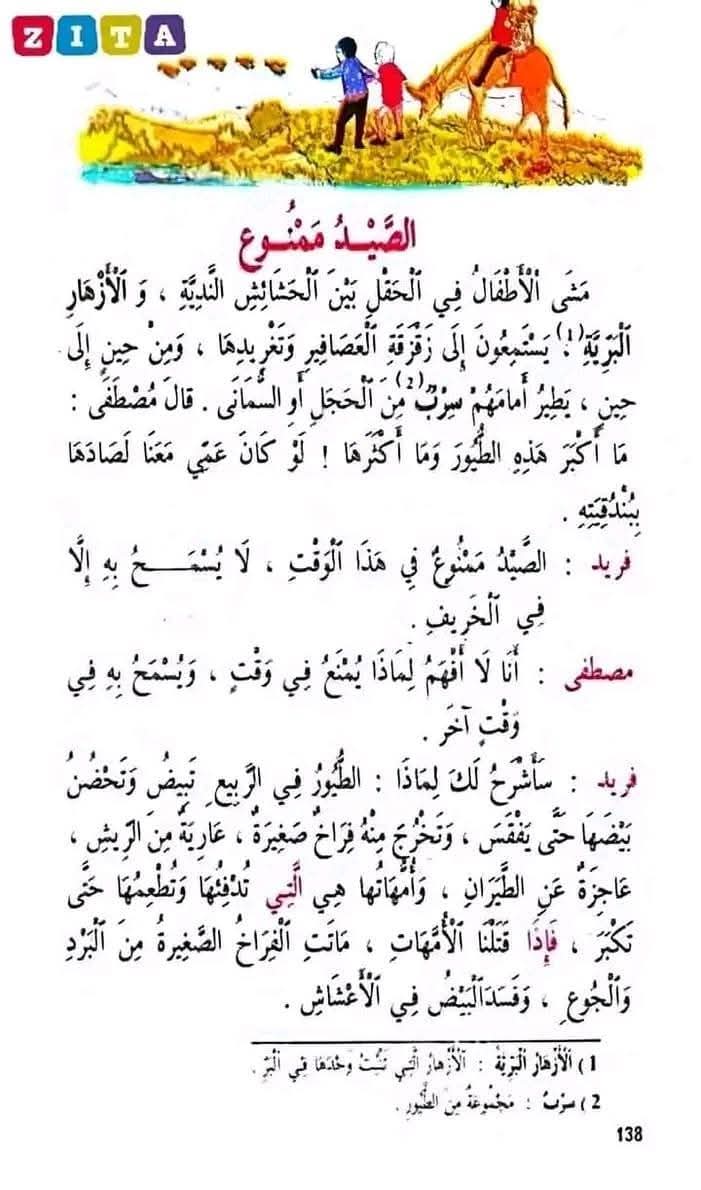 ZITA
الصَّيْدُ مَمْنُوع
مَشَى اْلأَطْفَالُ فِي اْلحَقْلِ بَيْنَ اْلحَشَائِشِ النَّدِيَّةِ ، وَ اْلأَزْهَارِ
اْلبَرِّيَّةِ (1)، يَسْتَمِعُونَ إِلَى زَقْزَقَةِ اْلعَصَافِيرِ وَتَغْرِيدِهَا ، وَمِنْ حِينٍ إِلَى
حِينٍ ، يَطِيرُ أَمَامَهُمْ سِرْبٌ (2) مِنَ اْلحَجَلِ أَوِ السُّمَانَى . قَالَ مُصْطَفَى :
مَا أَكْبَرَ هَذِهِ الطُّيُورَ وَمَا أَكْثَرَهَا ! لَوْ كَانَ عَمِّي مَعَنَا لَصَادَهَا
بِبُنْدُقِيَّتِهِ .
فريد : الصَّيْدُ مَمْنُوعٌ فِي هَذَا اْلوَقْتِ ، لَا يُسْمَـــحُ بِهِ إِلَّا
فِي اْلخَرِيفِ .
مصطفى : أَنَا لَا أَفْهَمُ لِمَاذَا يُمْنَعُ فِي وَقْتٍ ، وَيُسْمَحُ بِهِ فِي
وَقْتٍ آخَرَ .
فريد : سَأَشْرَحُ لَكَ لِمَاذَا : الطُّيُورُ فِي الرَّبِيعِ تَبِيضُ وَتَحْضُنُ
بَيْضَهَا حَتَّى يَفْقَسَ ، وَتَخْرُجَ مِنْهُ فِرَاخٌ صَغِيرَةٌ ، عَارِيَةٌ مِنَ الرِّيشِ ،
عَاجِزَةٌ عَنِ الطَّيَرَانِ ، وَأُمَّهَاتُهَا هِيَ الَّتِي تُدْفِئُهَا وَتُطْعِمُهَا حَتَّى
تَكْبَرَ ، فَإِذَا قَتَلْنَا اْلأُمَّهَاتِ ، مَاتَتِ اْلفِرَاخُ الصَّغِيرَةُ مِنَ اْلبَرْدِ
وَاْلجُوعِ ، وَفَسَدَ اْلبَيْضُ فِي اْلأَعْشَاشِ .
1 ) اْلأَزْهَارُ اْلبَرِّيَّةُ : اْلأَزْهَارُ الَّتِي تَنْبُتُ وَحْدَهَا فِي اْلبَرِّ .
2 ) سِرْبٌ : مَجْمُوعَةٌ مِنَ الطُّيُورِ .
138